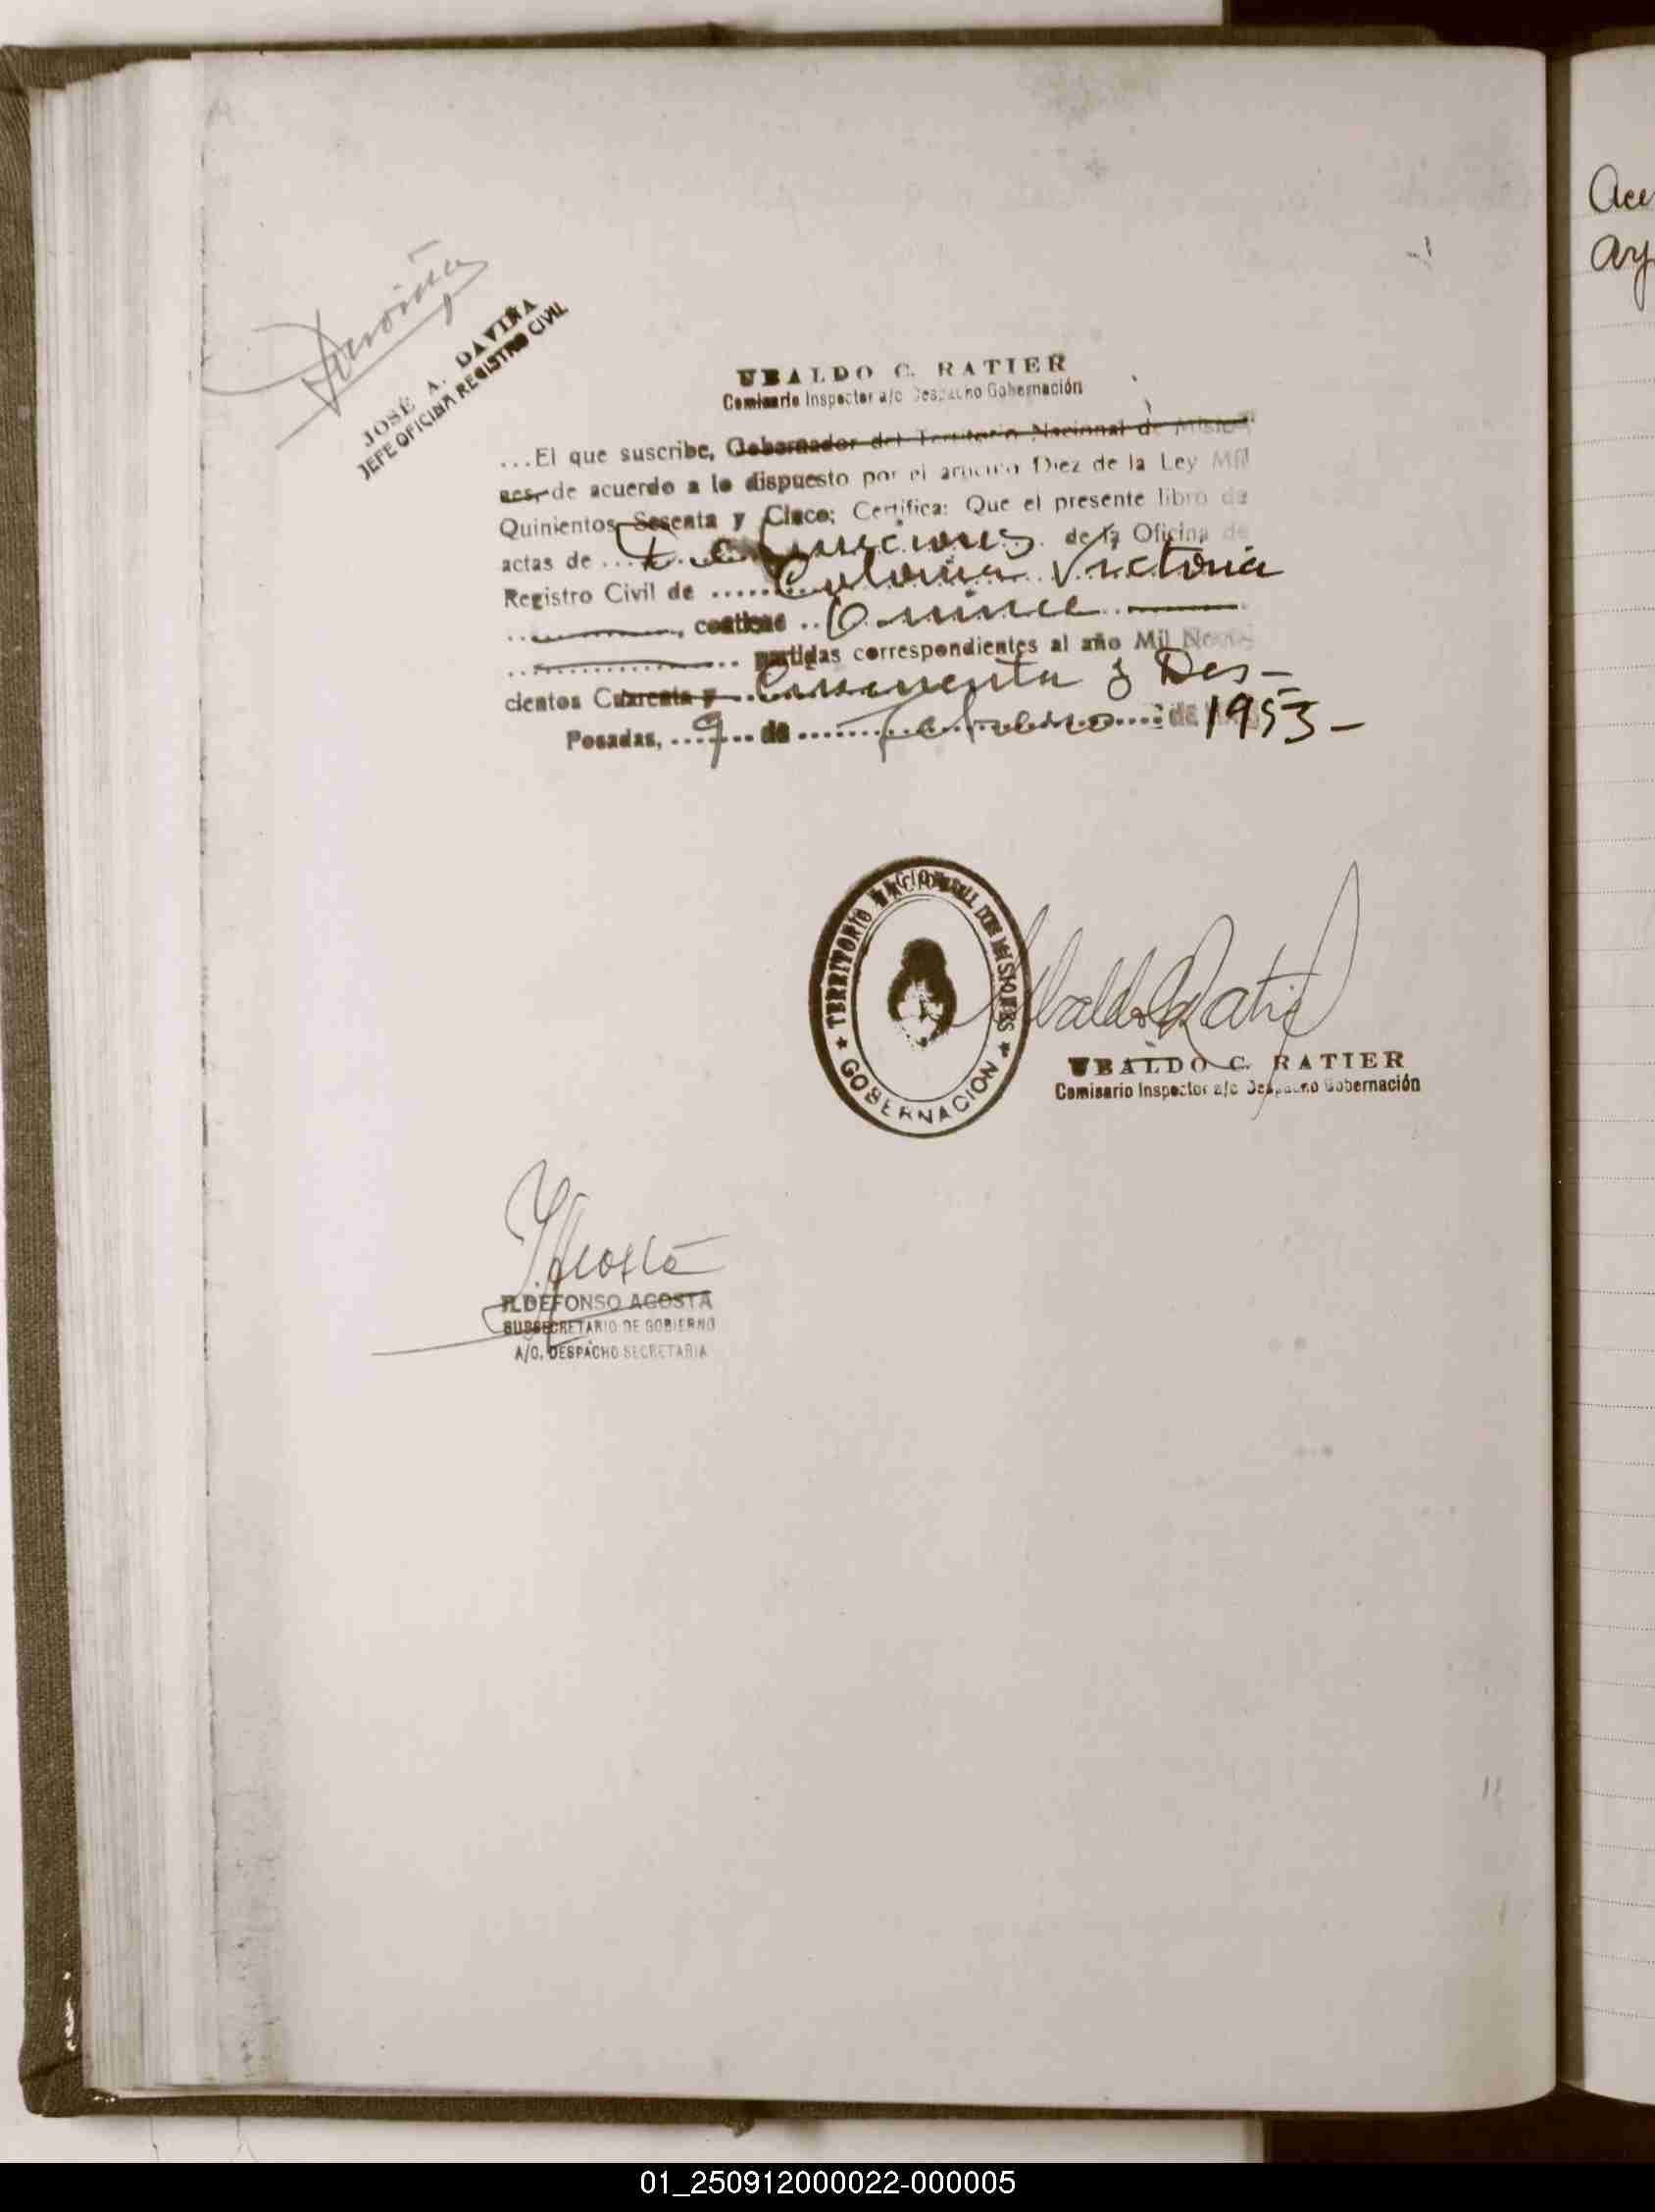 Daviña
JOSÉ A. DAVIÑA
JEFE OFICINA REGISTRO CIVIL
UBALDO C. RATIER
Comisario Inspector a/c Despacho Gobernación
...El que suscribe, Gobernador del Territorio Nacional de Misio-
nes, de acuerdo a lo dispuesto por el artículo Diez de la Ley Mil
Quinientos Sesenta y Cinco; Certifica: Que el presente libro de
actas de ... Defunciones de la Oficina de
Registro Civil de ..... Colonia Victoria
, contiene .. Quince
partidas correspondientes al año Mil Nove-
cientos Cuarenta y Cincuenta y Dos -
Posadas, 9 de Febrero de 1953 -
TERRITORIO NACIONAL DE MISIONES
GOBERNACION
Ubaldo C Ratier
UBALDO C. RATIER
Comisario Inspector a/c Despacho Gobernación
I. Acosta
ILDEFONSO ACOSTA
SUBSECRETARIO DE GOBIERNO
A/C. DESPACHO SECRETARIA
01_250912000022-000005